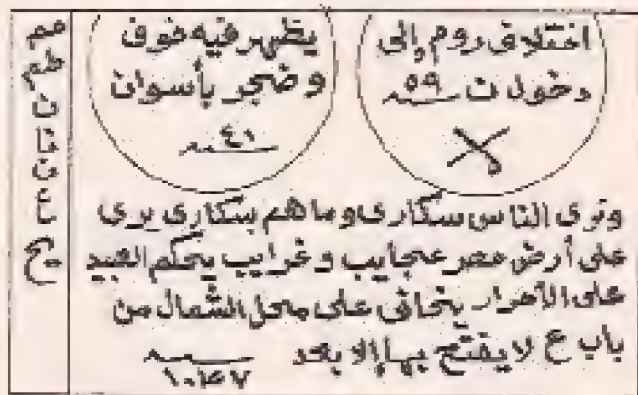 اختلاف روم إلى
دخول ت ٥٩ سنه
يظهر فيه خوف
وضجر بأسوان
٤١ سنه
وترى الناس سكارى وما هم بسكارى يرى
على أرض مصر عجايب وغرايب يحكم العبيد
على الأحرار يتخافى على محل الشمال من
باب ع لا يفتح بها إلا بعد
سنه